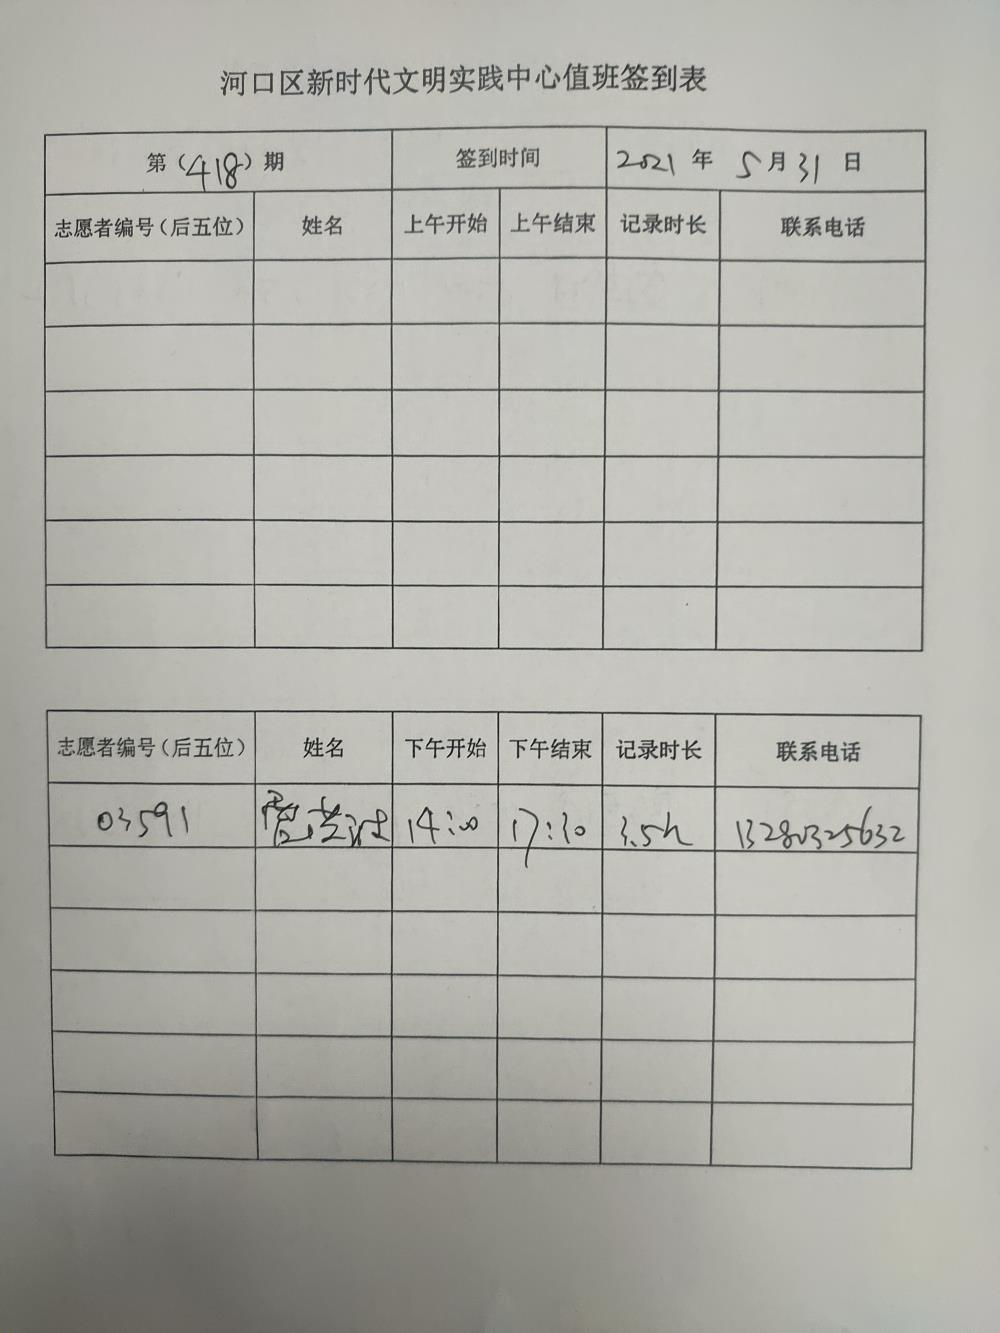 河口区新时代文明实践中心值班签到表
第（418）期 签到时间 2021 年 5 月 31 日
志愿者编号（后五位） 姓名 上午开始 上午结束 记录时长 联系电话
志愿者编号（后五位） 姓名 下午开始 下午结束 记录时长 联系电话
03591 14:00 17:30 3.5h 13280325632